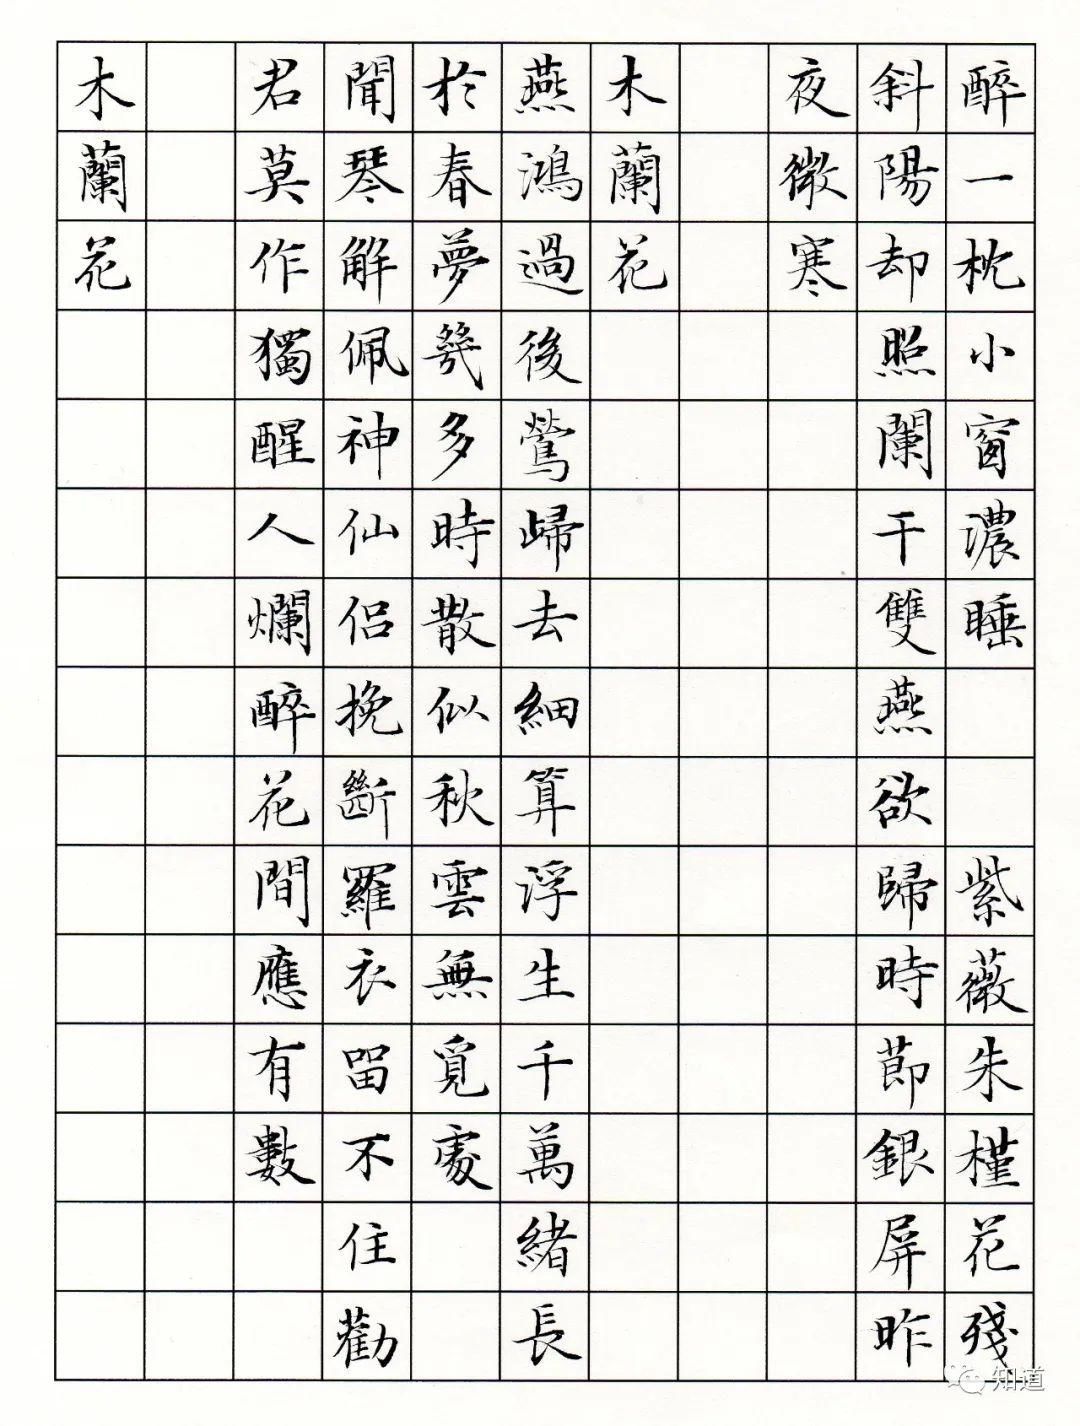 醉一枕小窗濃睡 紫薇朱槿花殘
斜陽却照闌干雙燕欲歸時節銀屏昨
夜微寒
木蘭花
燕鴻過後鶯歸去細算浮生千萬緒長
於春夢幾多時散似秋雲無覓處
聞琴解佩神仙侶挽斷羅衣留不住勸
君莫作獨醒人爛醉花間應有數
木蘭花
知道